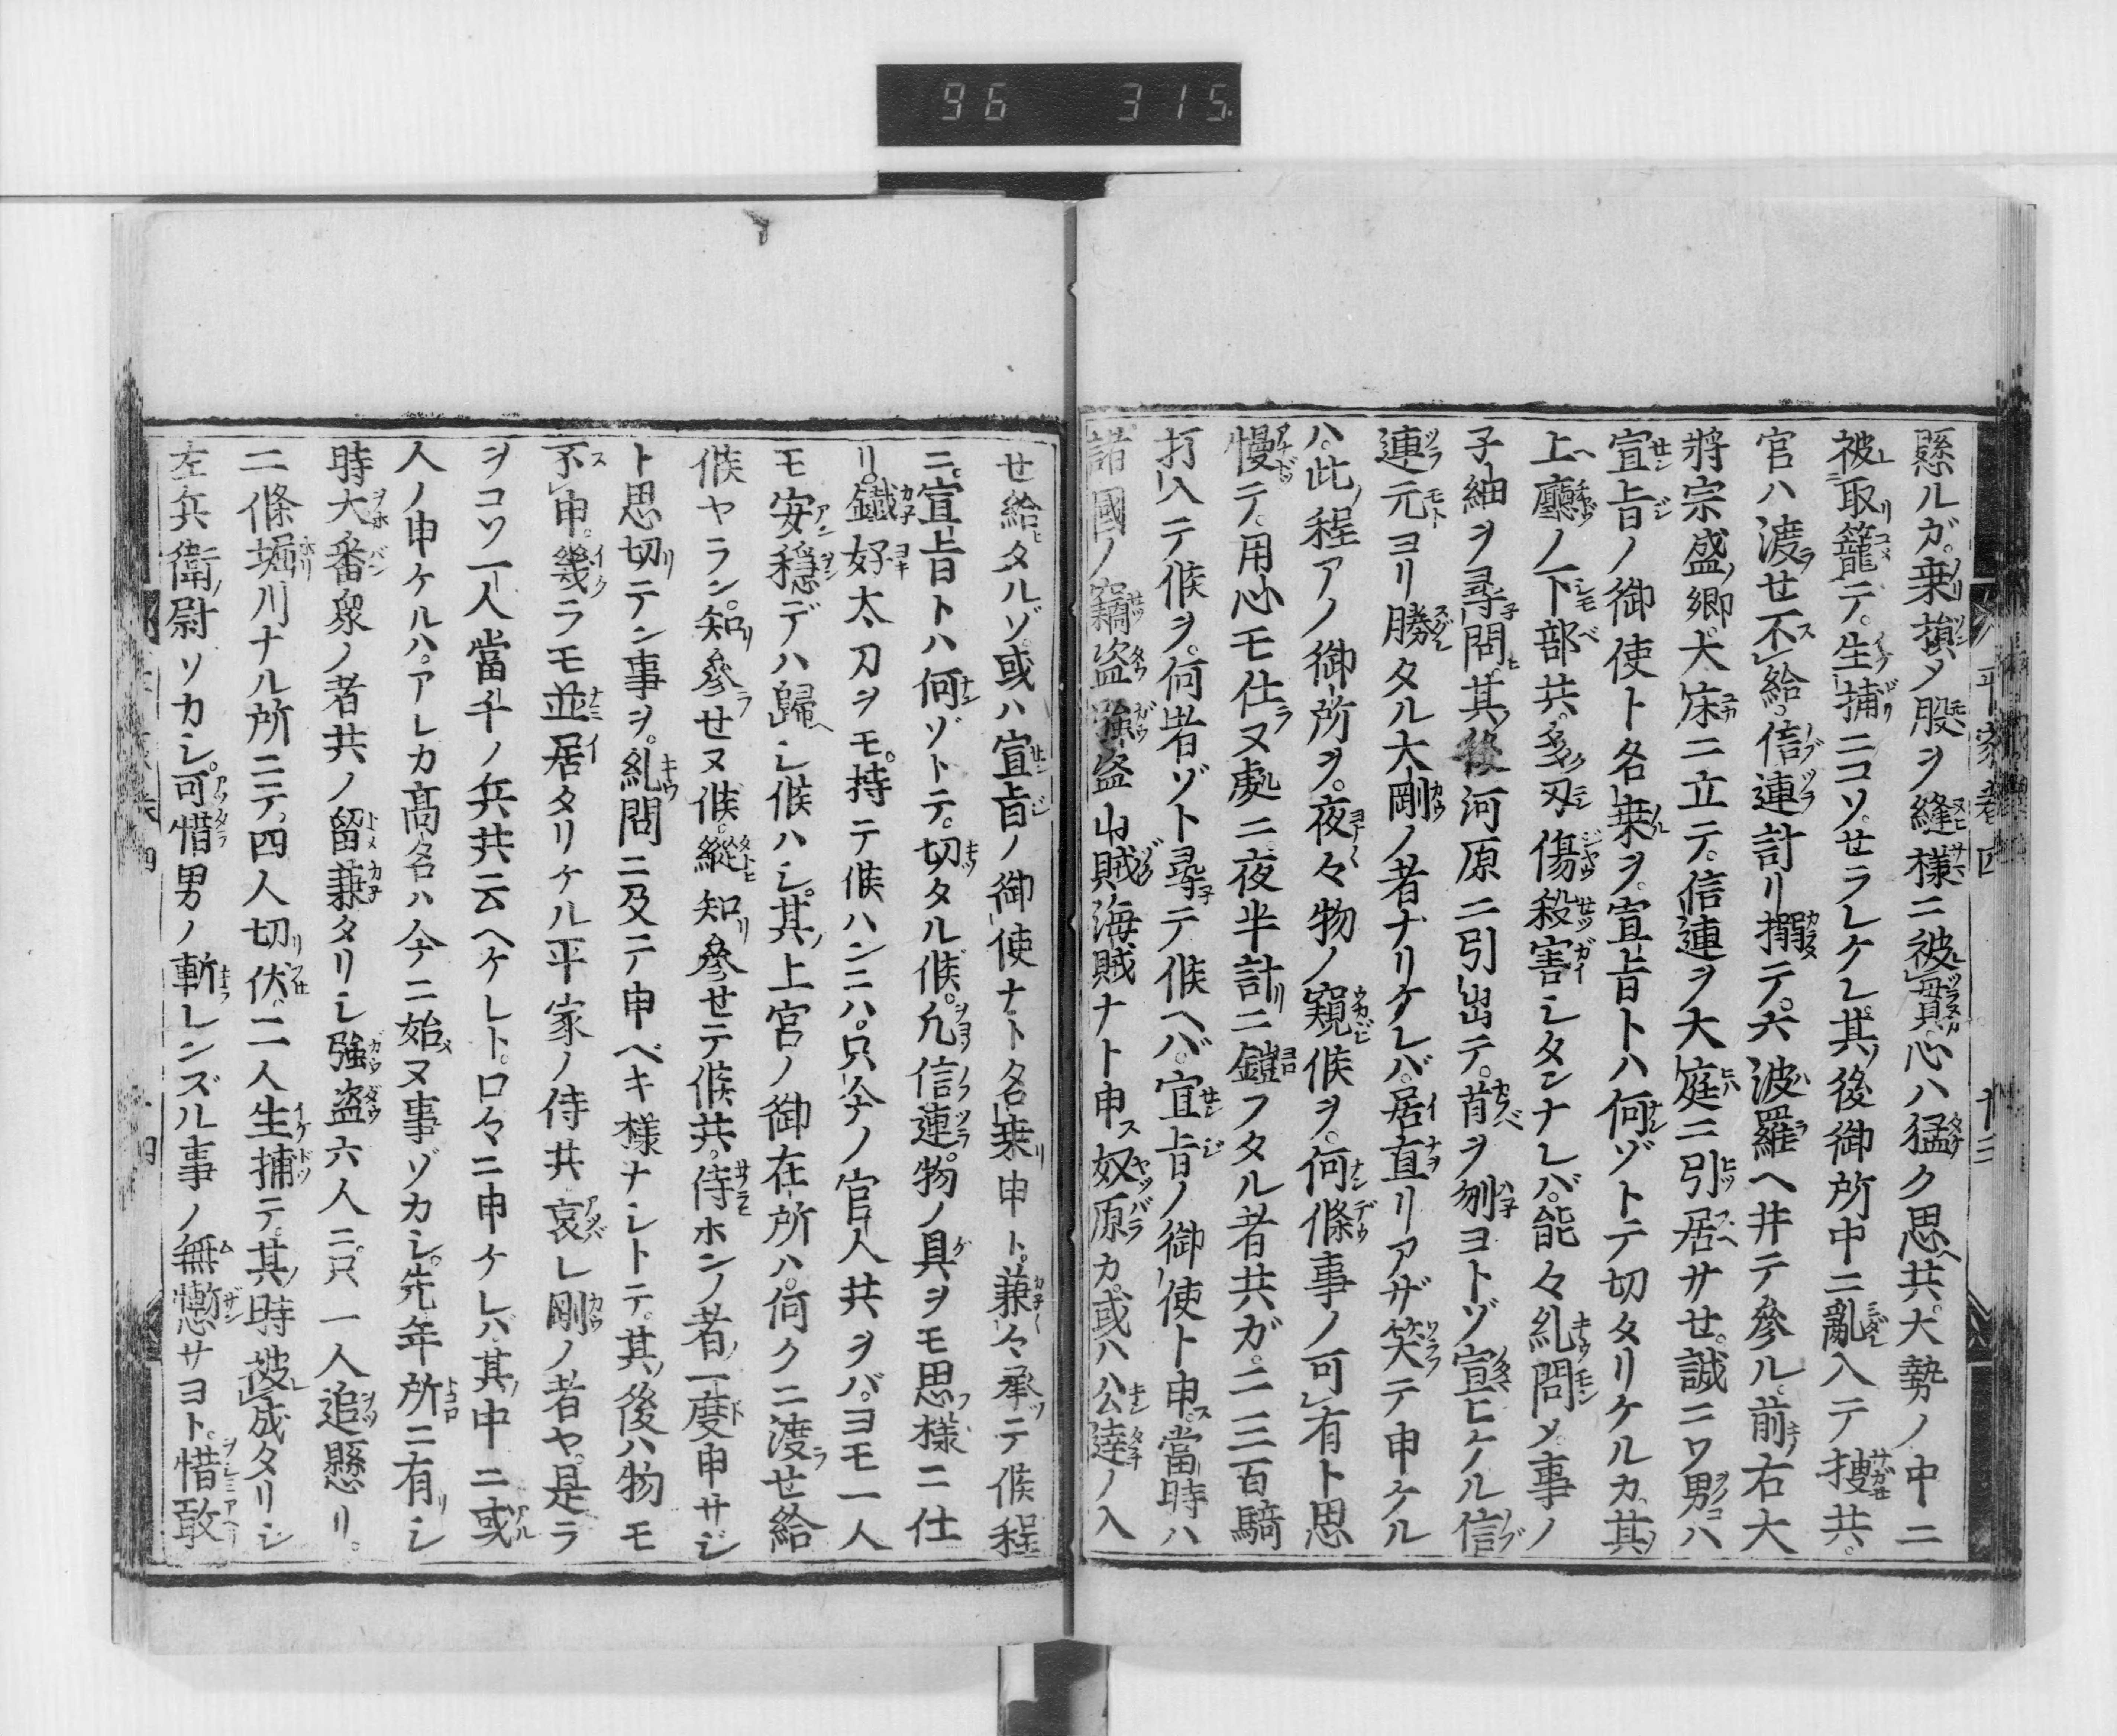 96 315
懸ルガ。乗損メ股ヲ縫様ニ被貫。心ハ猛ク思共。大勢ノ中ニ
被取籠テ。生捕ニコソ。セラレケレ。其後御所中ニ亂入テ捜共。
官ハ渡セ不給。信連計リ搦テ。六波羅ヘ井テ參ル。前右大
將宗盛卿。大床ニ立テ。信連ヲ大庭ニ引居サセ。誠ニワ男ハ
宣旨ノ御使ト名乗ヲ。宣旨トハ何ゾトテ切タリケルカ。其
上廳ノ下部共。多刄傷殺害シタンナレバ。能々糺問メ。事ノ
子細ヲ尋問。其後河原ニ引出テ。首ヲ刎ヨトゾ宣ヒケル信
連元ヨリ勝タル大剛ノ者ナリケレバ。居直リアザ笑テ申ケル
ハ。此程アノ御所ヲ。夜々物ノ窺候ヲ。何條事ノ可有ト思
慢テ。用心モ仕ヌ處ニ。夜半計ニ鎧フタル者共ガ。二三百騎
打入テ候ヲ。何者ゾト尋テ候ヘバ。宣旨ノ御使ト申。當時ハ
諸國ノ竊盗強盗山賊海賊ナト申奴原カ。或ハ公達ノ入
セ給タルゾ。或ハ宣旨ノ御使ナト名乗申ト。兼々承テ候程
ニ。宣旨トハ何ゾトテ。切タル候。凡信連。物ノ具ヲモ思様ニ仕
リ。鐡好太刀ヲモ。持テ候ハンニハ。只今ノ官人共ヲバ。ヨモ一人
モ安穏デハ歸シ候ハシ。其上官ノ御在所ハ。何クニ渡セ給
候ヤラン。知參セヌ候。縦知參セテ候共。侍ホンノ者一度申サジ
ト思切テン事ヲ。糺問ニ及ニテ申ベキ様ナシトテ。其後ハ物モ
不申。幾ラモ並居タリケル平家ノ侍共哀レ剛ノ者ヤ。是ラ
ヲコソ一人當千ノ兵共云ヘケレト。口々ニ申ケレバ。其中ニ或
人ノ申ケルハ。アレカ高名ハ今ニ始ヌ事ゾカシ。先年所ニ有シ
時大番衆ノ者共ノ留兼タリシ強盗六人ニ。只一人追懸リ。
二條堀川ナル所ニテ。四人切伏。二人生捕テ。其時被成タリシ
左兵衛尉ソカシ。可惜男ノ斬レンズル事ノ無慙サヨト。惜敢